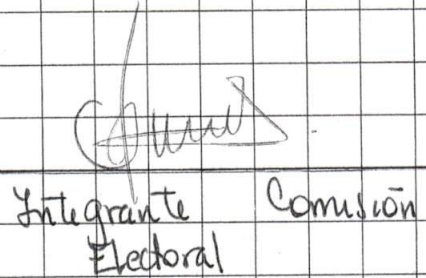 Integrante Comisión
Electoral